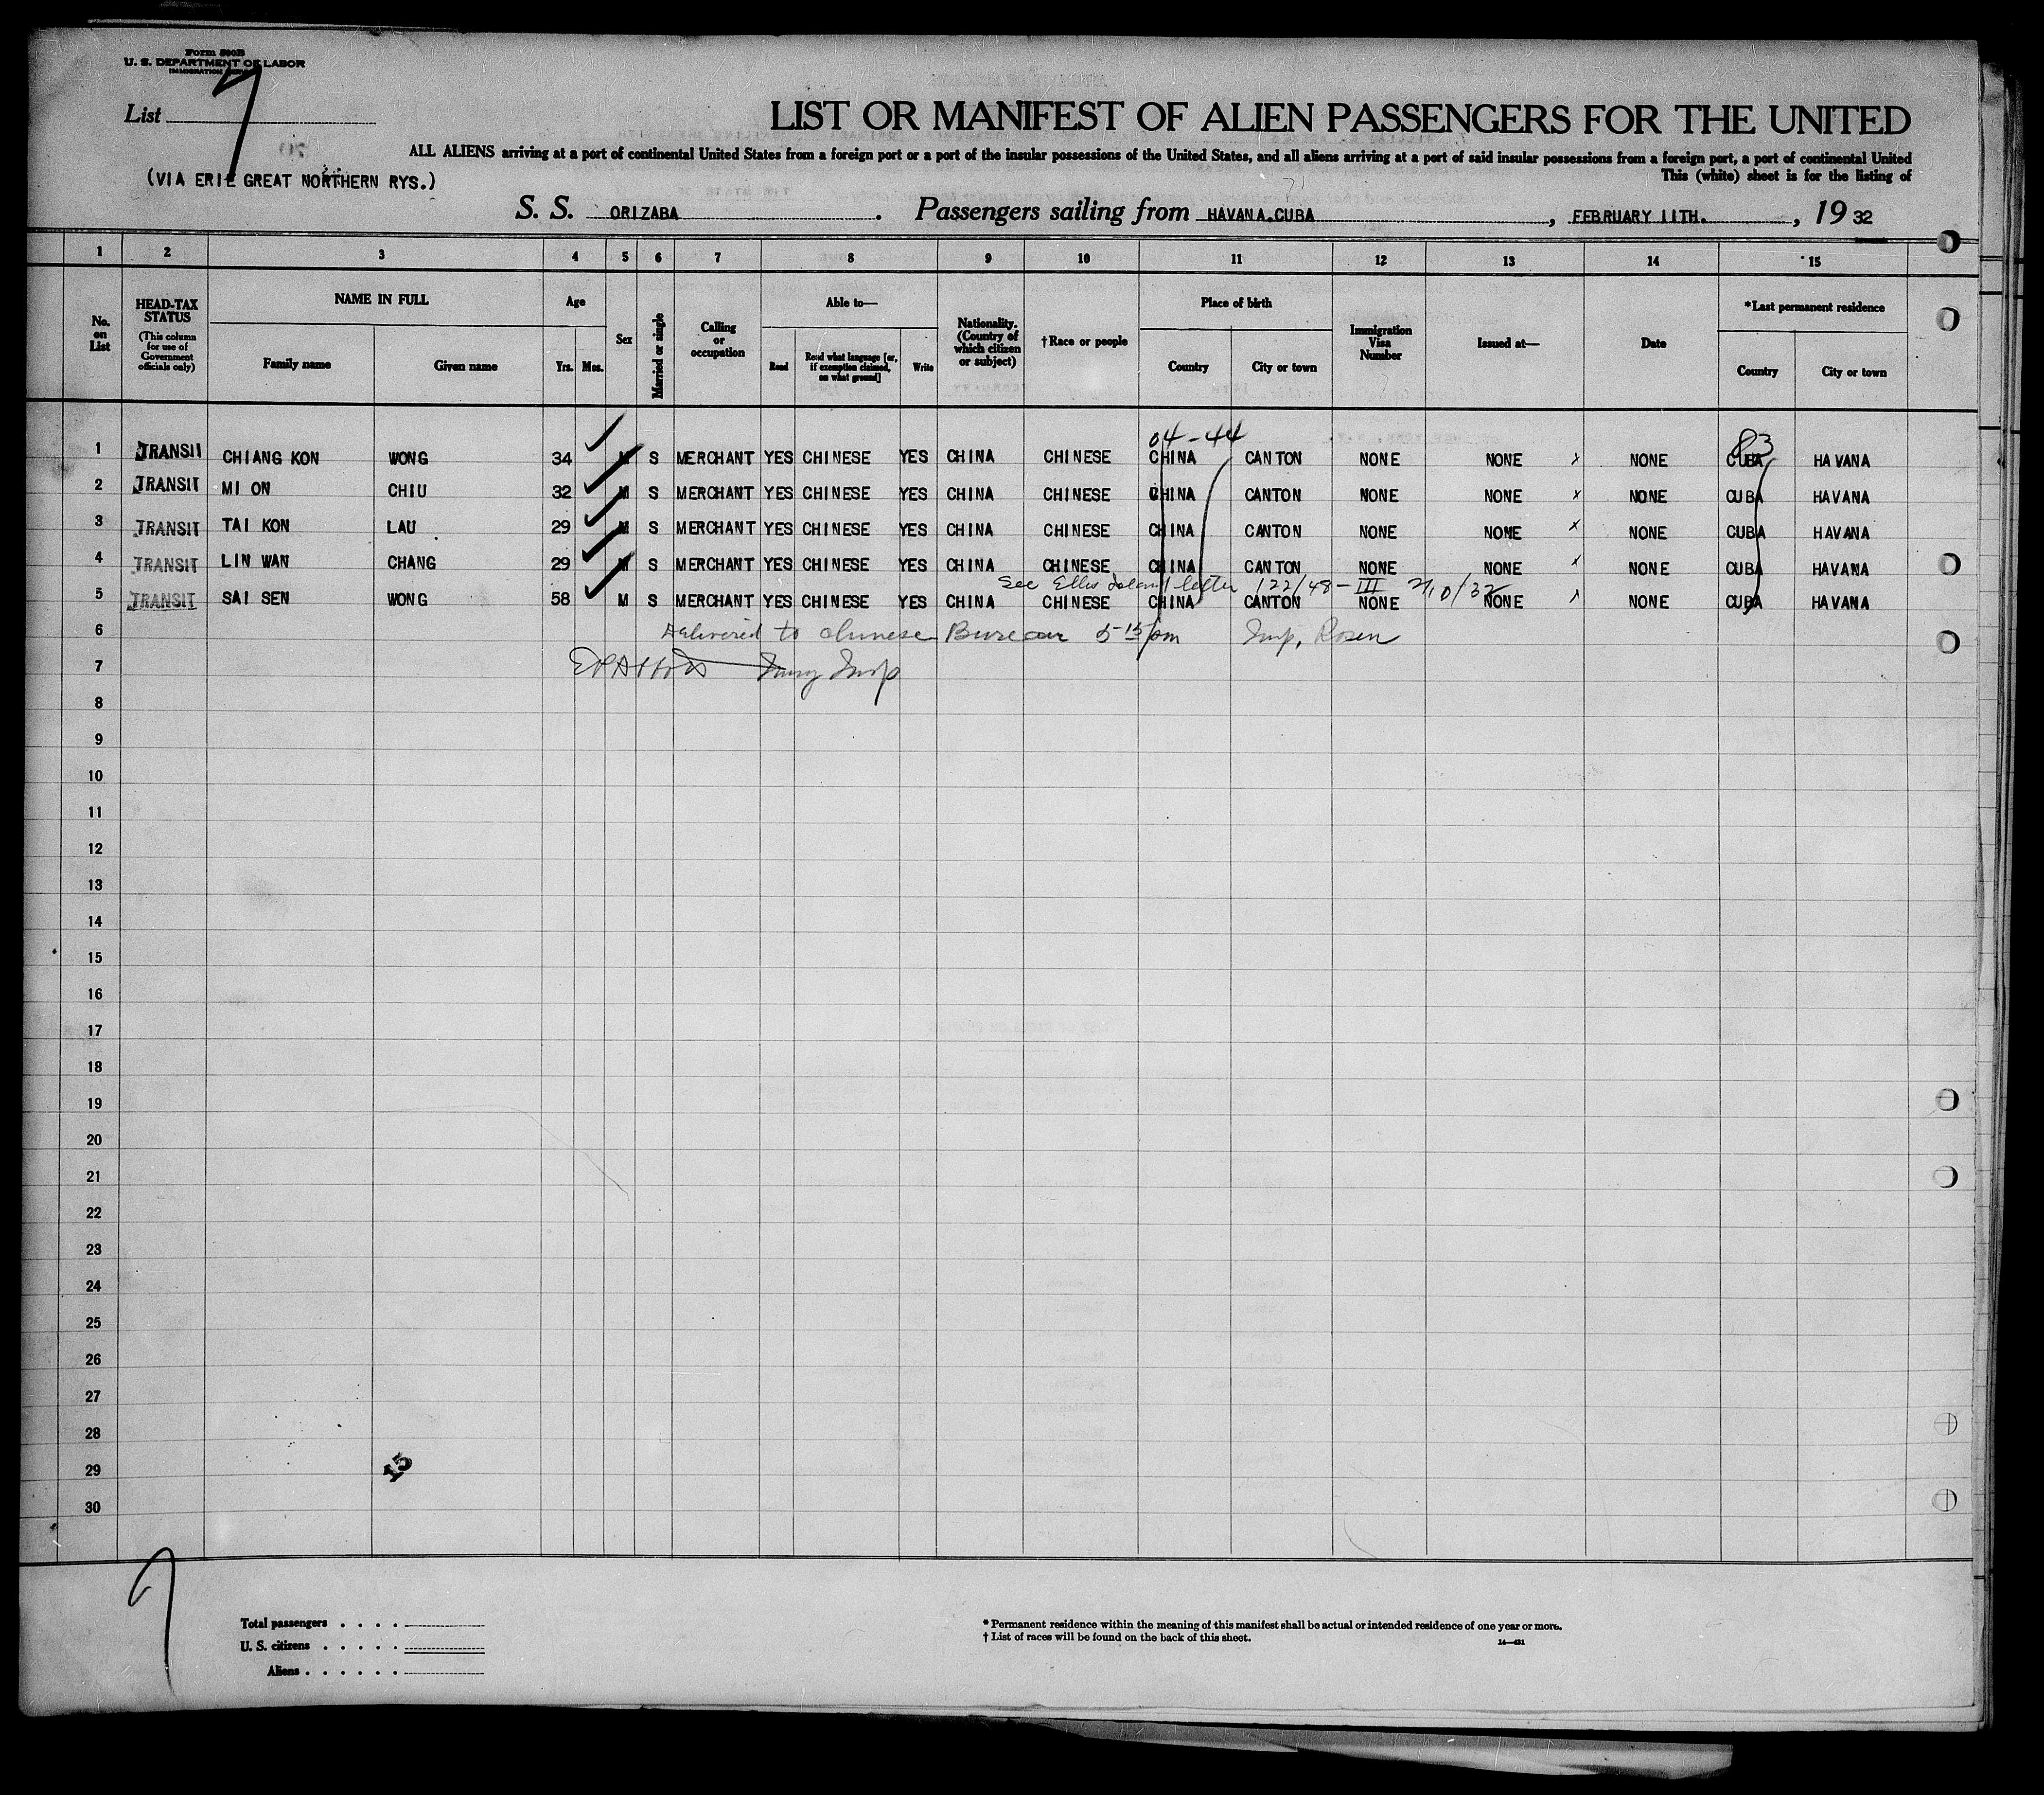 Form 500B
U. S. DEPARTMENT OF LABOR
IMMIGRATION SERVICE
List 7
LIST OR MANIFEST OF ALIEN PASSENGERS FOR THE UNITED
ALL ALIENS arriving at a port of continental United States from a foreign port or a port of the insular possessions of the United States, and all aliens arriving at a port of said insular possessions from a foreign port, a port of continental United
This (white) sheet is for the listing of
(VIA ERIE GREAT NORTHERN RYS.)
S. S. ORIZABA. Passengers sailing from HAVANA.CUBA, FEBRUARY 11TH., 19 32
1 2 3 4 5 6 7 8 9 10 11 12 13 14 15
No. on List HEAD-TAX STATUS (This column for use of Government officials only) NAME IN FULL Family name Given name Age Yrs. Mos. Sex Married or single Calling or occupation Able to— Read Read what language [or, if exemption claimed, on what ground] Write Nationality. (Country of which citizen or subject) †Race or people Place of birth Country City or town Immigration Visa Number Issued at— Date *Last permanent residence Country City or town
04-44 83
1 TRANSIT CHIANG KON WONG 34 M S MERCHANT YES CHINESE YES CHINA CHINESE CHINA CANTON NONE NONE x NONE CUBA HAVANA
2 TRANSIT MI ON CHIU 32 M S MERCHANT YES CHINESE YES CHINA CHINESE CHINA CANTON NONE NONE x NONE CUBA HAVANA
3 TRANSIT TAI KON LAU 29 M S MERCHANT YES CHINESE YES CHINA CHINESE CHINA CANTON NONE NONE x NONE CUBA HAVANA
4 TRANSIT LIN WAN CHANG 29 M S MERCHANT YES CHINESE YES CHINA CHINESE CHINA CANTON NONE NONE x NONE CUBA HAVANA
See Ellis Island letter 122/48-III
5 TRANSIT SAI SEN WONG 58 M S MERCHANT YES CHINESE YES CHINA CHINESE CHINA CANTON NONE NONE x NONE CUBA HAVANA
6 Delivered to Chinese Bureau 5-15 pm Insp. Rosen
7 Insp
8
9
10
11
12
13
14
15
16
17
18
19
20
21
22
23
24
25
26
27
28
29 15
30
7
Total passengers
U. S. citizens
Aliens
* Permanent residence within the meaning of this manifest shall be actual or intended residence of one year or more.
† List of races will be found on the back of this sheet.
14—421